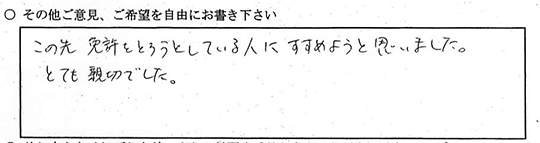 ○ その他ご意見、ご希望を自由にお書き下さい
この先 免許をとろうとしている人に すすめようと思いました。
とても 親切でした。